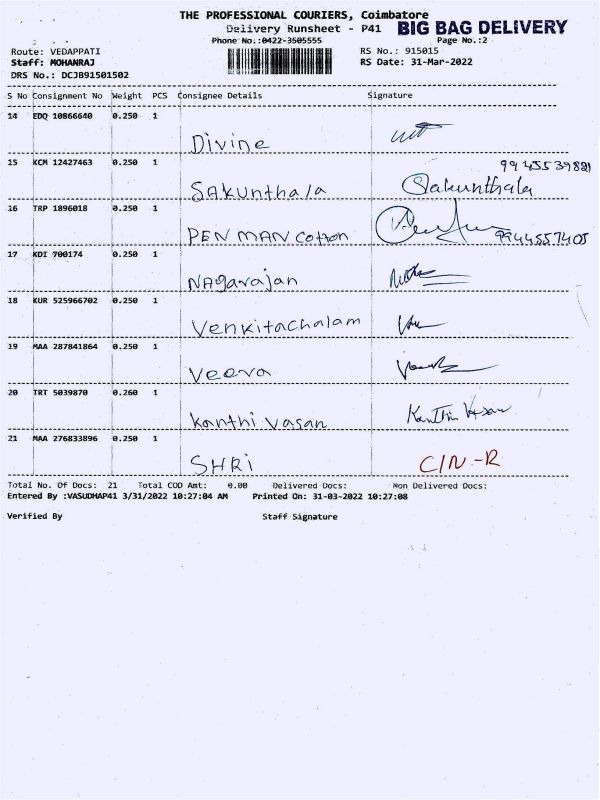 THE PROFESSIONAL COURIERS, Coimbatore
Delivery Runsheet - P41 BIG BAG DELIVERY
Phone No.:0422-3505555 Page No.:2
Route: VEDAPPATI RS No.: 915015
Staff: MOHANRAJ RS Date: 31-Mar-2022
DRS No.: DCJB91501502
S No Consignment No Weight PCS Consignee Details Signature
14 EDQ 10866640 0.250 1
Divine
15 KCM 12427463 0.250 1
SAkunthala Sakunthala
16 TRP 1896018 0.250 1
PEN MAN Cotton 9944557405
17 KDI 700174 0.250 1
NAgarajan
18 KUR 525966702 0.250 1
Venkitachalam
19 MAA 287841864 0.250 1
Veera
20 TRT 5039870 0.260 1
Kanthi Vasan
21 MAA 276833896 0.250 1
SHRi CIN-R
Total No. Of Docs: 21 Total COD Amt: 0.00 Delivered Docs: Non Delivered Docs:
Entered By :VASUDHAP41 3/31/2022 10:27:04 AM Printed On: 31-03-2022 10:27:08
Verified By Staff Signature